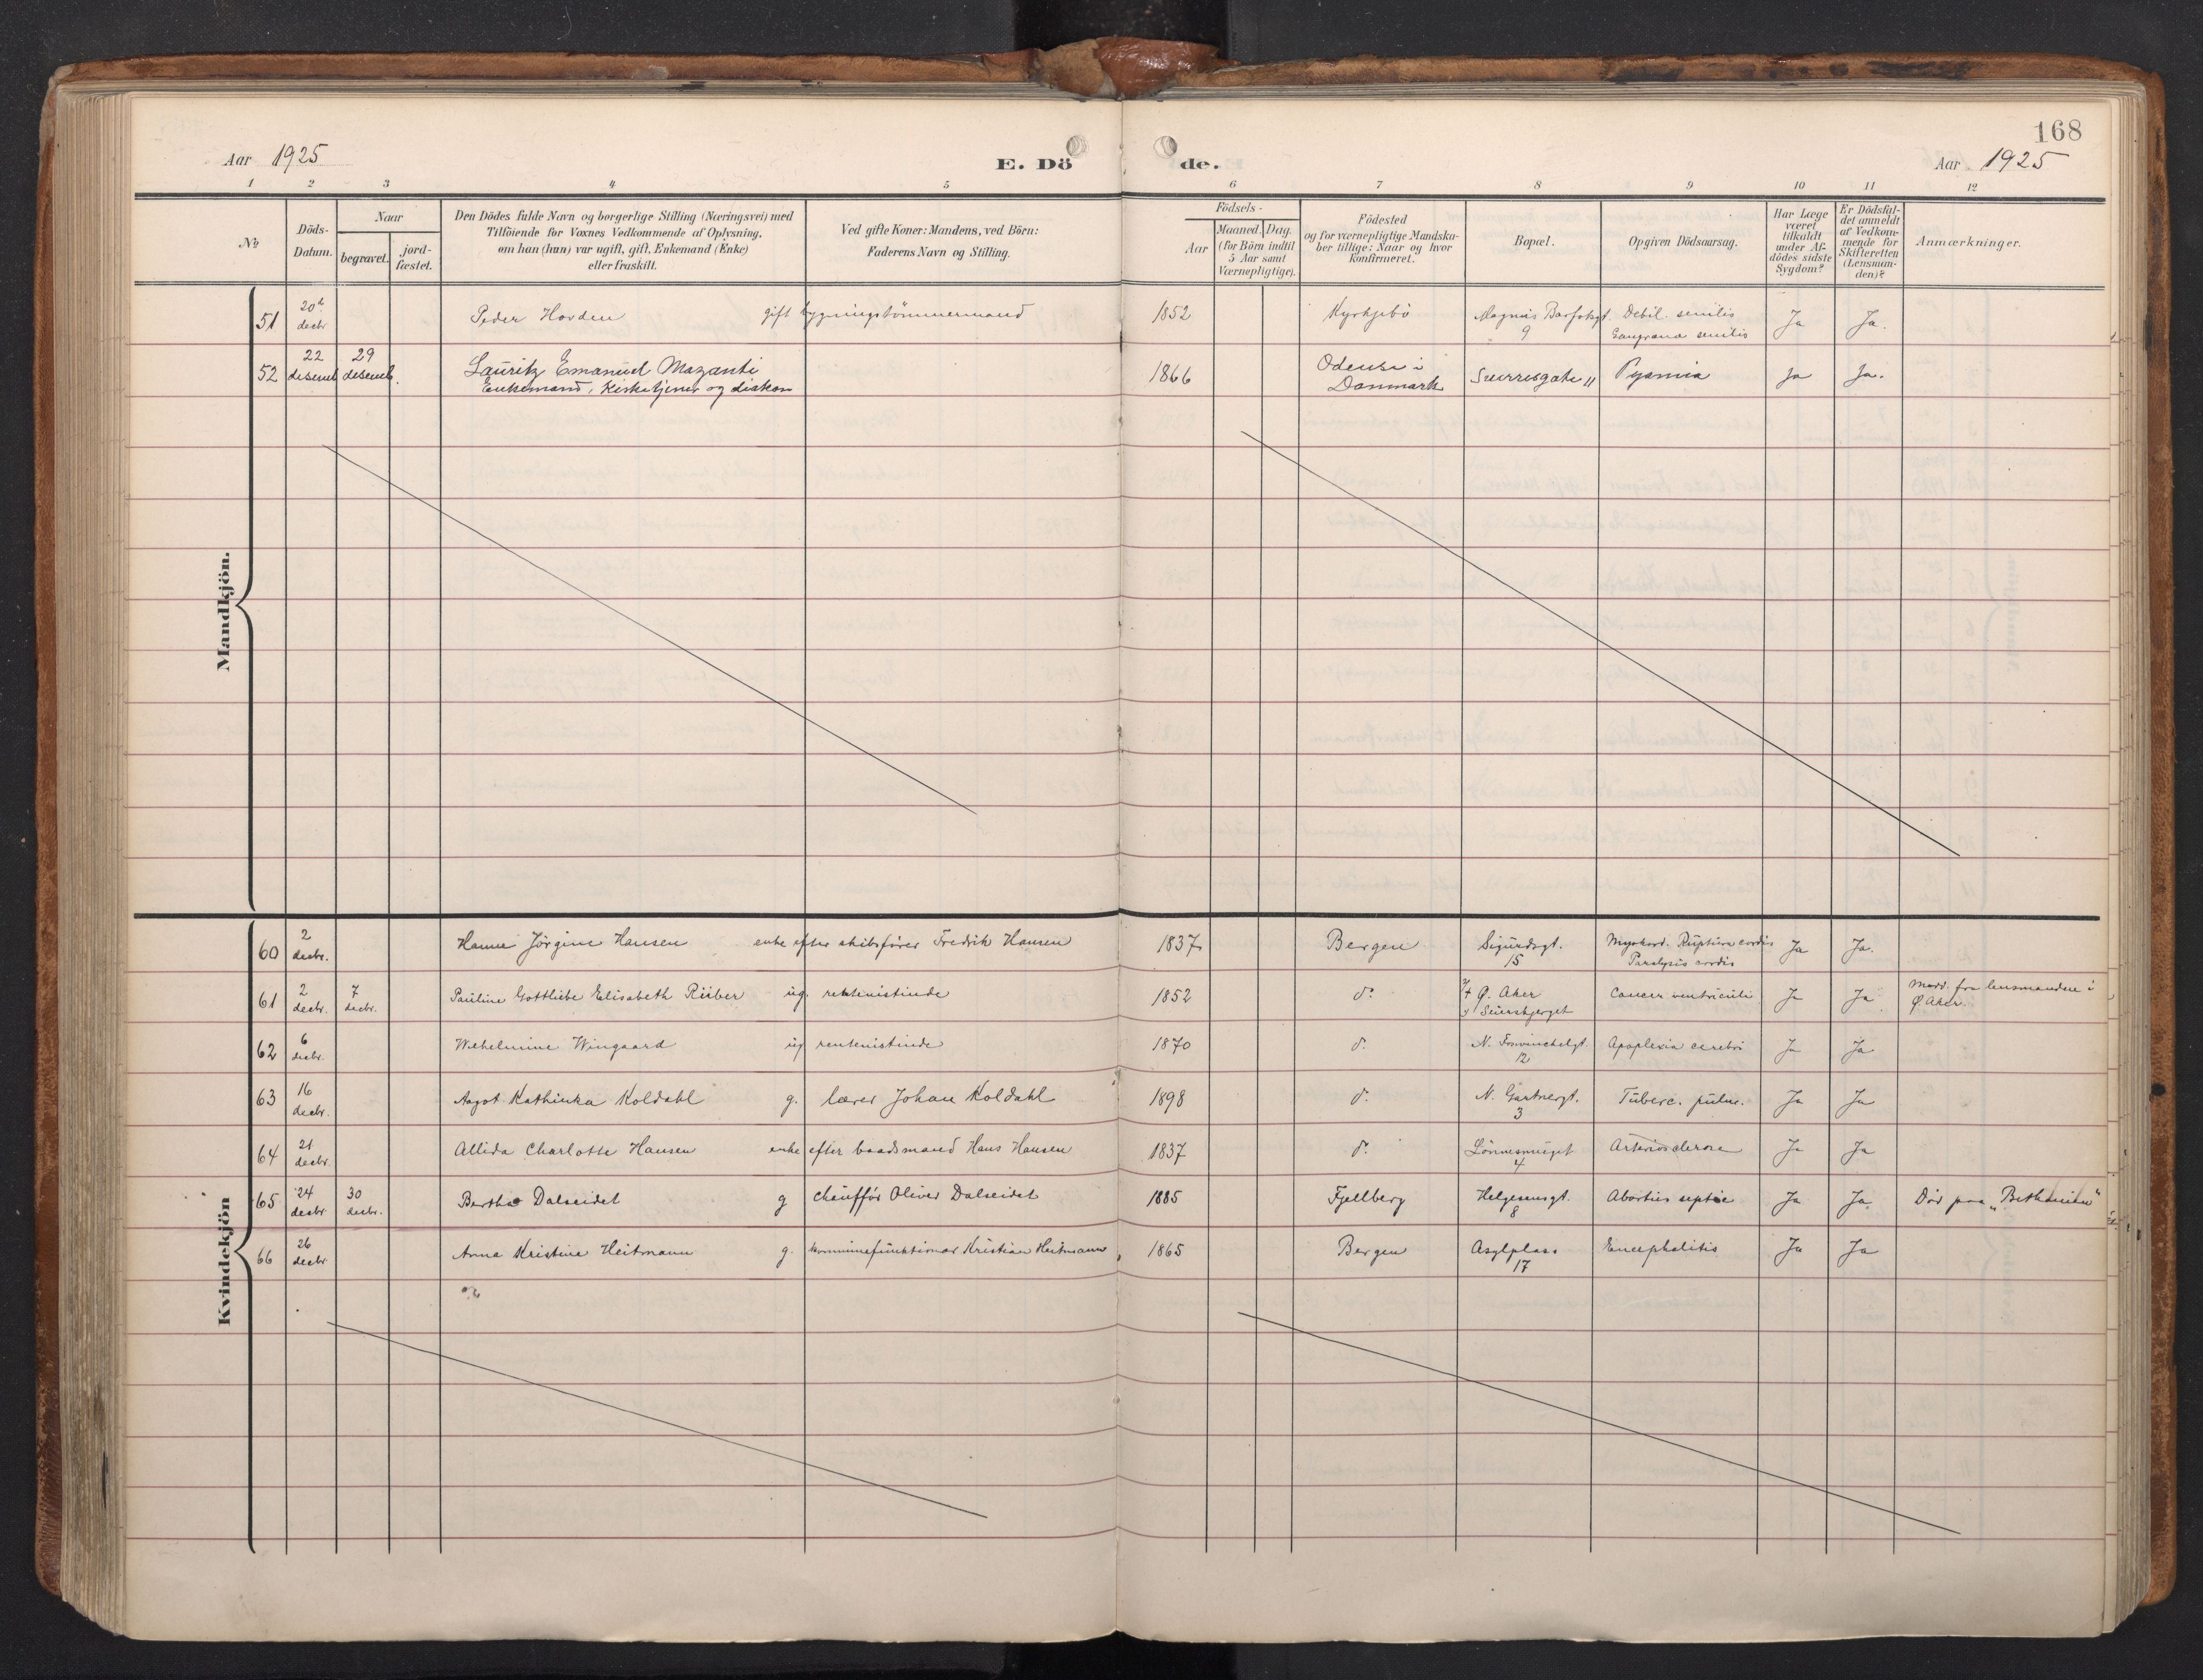 168
Aar 1925
E. Dö
de.
Aar 1925
1 2 3 4 5 6 7 8 9 10 11 12
No
Döds-
Datum.
Naar
begravet.
jord-
fæstet.
Den Dödes fulde Navn og borgerlige Stilling (Næringsvei) med
Tilföiende for Voxnes Vedkommende af Oplysning,
om han (hun) var ugift, gift, Enkemand (Enke)
eller fraskilt.
Ved gifte Koner: Mandens, ved Börn:
Faderens Navn og Stilling.
Födsels-
Aar
Maaned. Dag.
(for Börn indtil
5 Aar samt
Værnepligtige).
Födested
og for værnepligtige Mandska-
ber tillige: Naar og hvor
Konfirmeret.
Bopæl.
Opgiven Dödsaarsag.
Har Læge
været
tilkaldt
under Af-
dödes sidste
Sygdom?
Er Dödsfal-
det anmeldt
af Vedkom-
mende for
Skifteretten
(Lensman-
den)?
Anmærkninger.
Mandkjön.
51 20 decbr Peder Hovden gift bygningstømmermand 1852 Kyrkjebö Magnus Barfotsgt. 9 Debil. senilis Ja Ja.
Gangræna senilis
52 22 desemb 29 desemb. Lauritz Emanuel Mazanti 1866 Odense i Danmark Sverresgate 11 Pyæmia Ja Ja.
Enkemand, Kirketjener og diakon
Kvindekjön
60 2 decbr. Hanne Jörgine Hansen enke efter skibsfører Fredrik Hansen 1837 Bergen Sigurdsgt. 15 Myokard. Ruptura cordis Ja Ja.
Paralysis cordis
61 2 decbr. 7 decbr. Pauline Gottliebe Elisabeth Rüber ug. rentenistinde 1852 do Ø. Aker Cancer ventriculi Ja Ja fra lensmanden i
Ø. Aker.
62 6 decbr. Wilhelmine Wingaard ug rentenistinde 1870 do 12 Apoplexia cerebri Ja Ja
63 16 decbr. Aagot Kathinka Koldahl g. lærer Johan Koldahl 1898 do N. Gartnergt. 3 Tuberc. pulm. Ja Ja
64 21 decbr. Allida Charlotte Hansen enke efter baadsmand Hans Hansen 1837 do 4 Arteriosclerose Ja Ja
65 24 decbr 30 decbr. Berthe Dalseidet g chauffør Oliver Dalseidet 1885 Fjellberg Helgesensgt. 8 Abortus septic Ja Ja Död paa "Bethanien"
66 26 decbr Anna Kristine Heitmann g. kommunefunktionær Kristian Heitmann 1865 Bergen Asylplass 17 Encephalitis Ja Ja